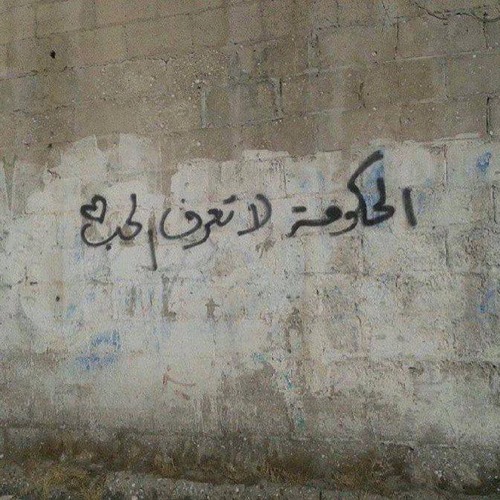 الحكومة لا تعرف الحب